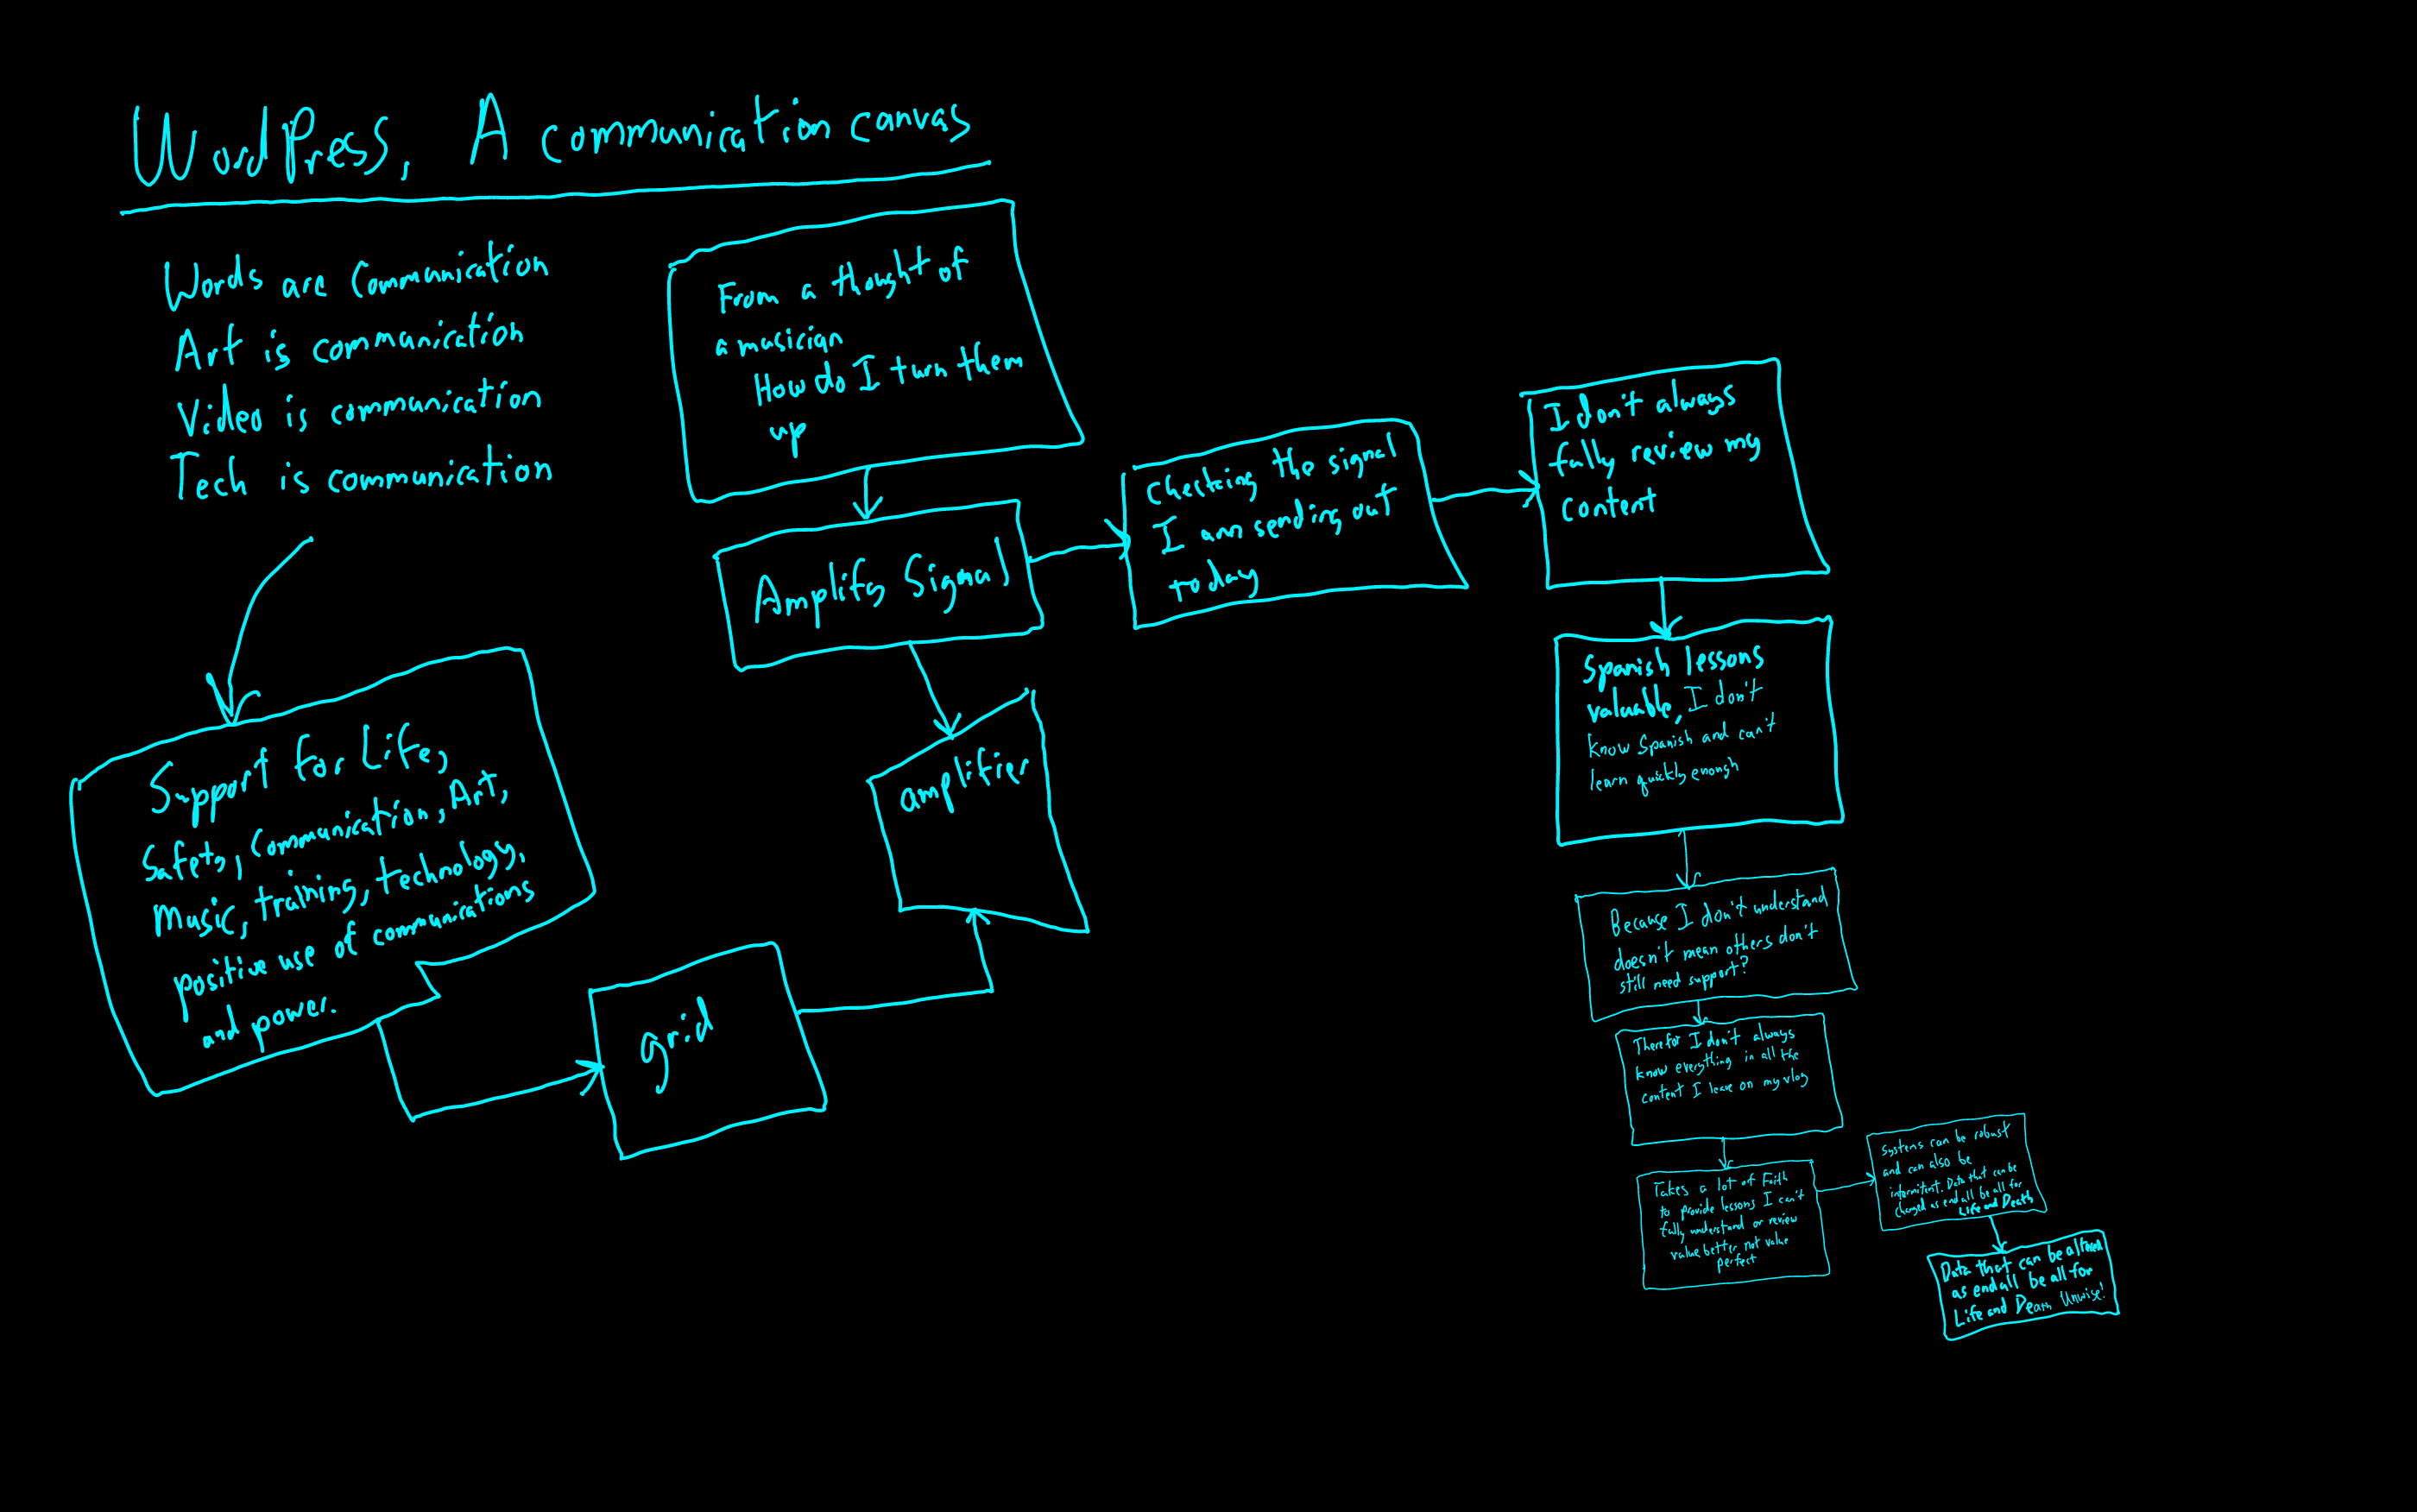 WordPress, A communication canvas
Words are Communication
Art is communication
Video is communication
Tech is communication
Support for Life,
Safety, Communication, Art,
Music, training, technology,
positive use of communications
and power.
grid
From a thought of
a musician
How do I turn them
up
Amplify Signal
amplifier
Checking the signal
I am sending out
today
I don't always
fully review my
content
Spanish lessons
valuable, I don't
know Spanish and can't
learn quickly enough
Because I don't understand
doesn't mean others don't
still need support?
Therefor I don't always
know everything in all the
content I leave on my vlog
Takes a lot of Faith
to provide lessons I can't
fully understand or review
value better not value
perfect
Systems can be robust
and can also be
intermitent. Data that can be
changed as end all be all for
Life and Death
Data that can be altered
as end all be all for
Life and Death Unwise!